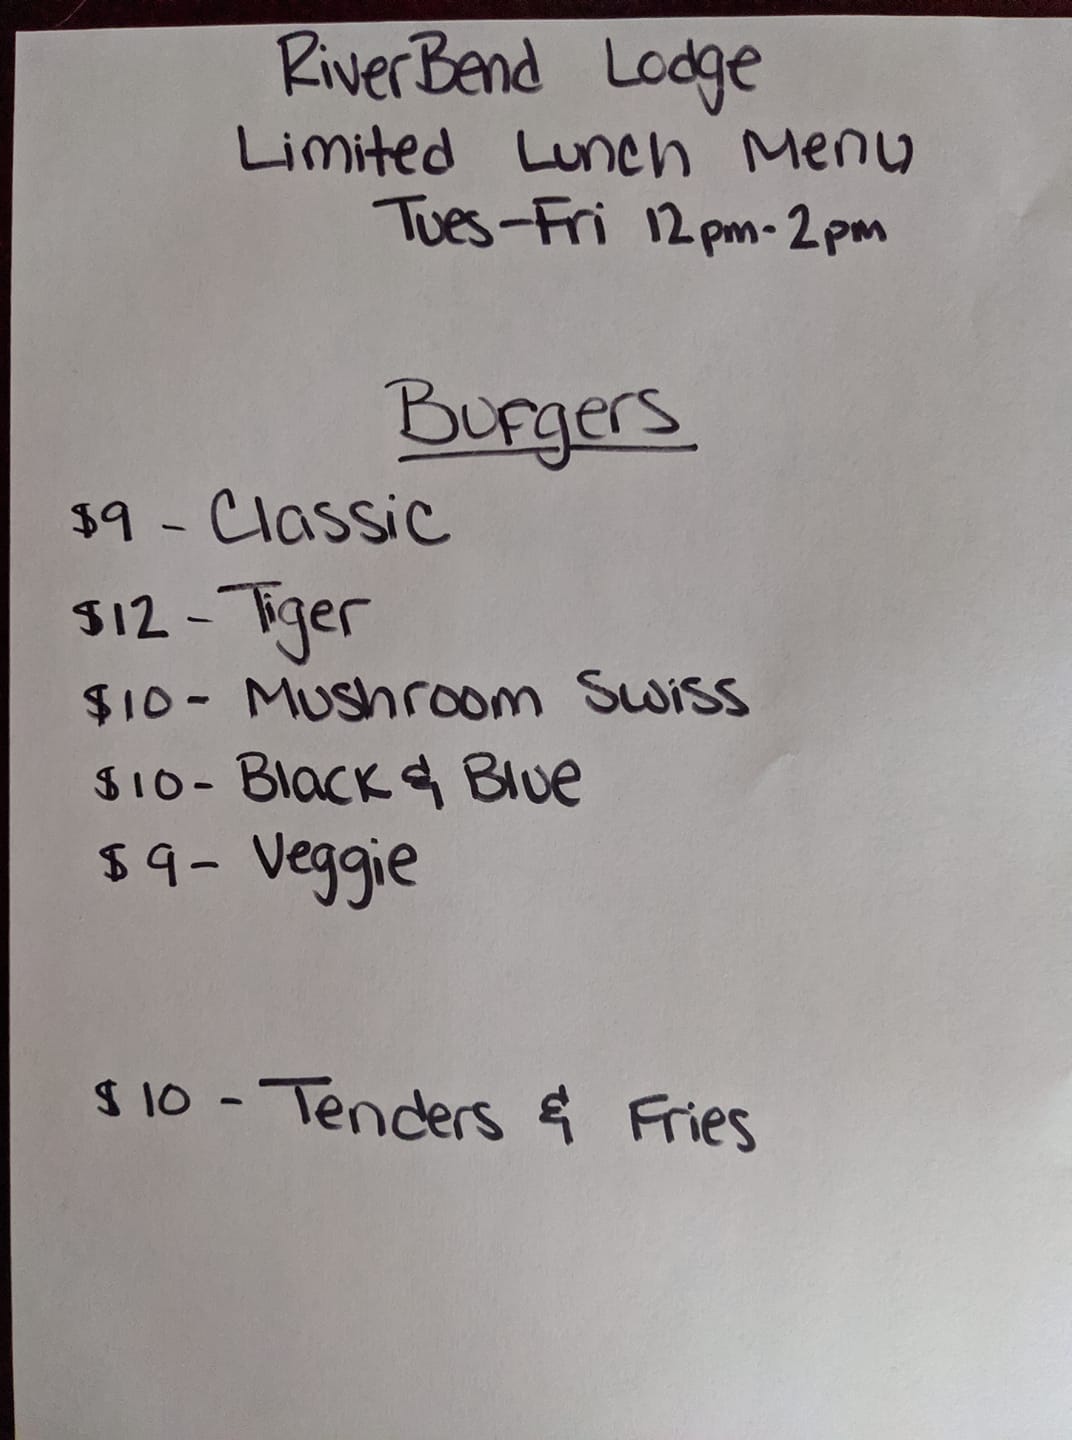 RiverBend Lodge
Limited Lunch Menu
Tues-Fri 12pm-2pm
Burgers
$9 - Classic
$12 - Tiger
$10 - Mushroom Swiss
$10 - Black & Blue
$9 - Veggie
$10 - Tenders & Fries